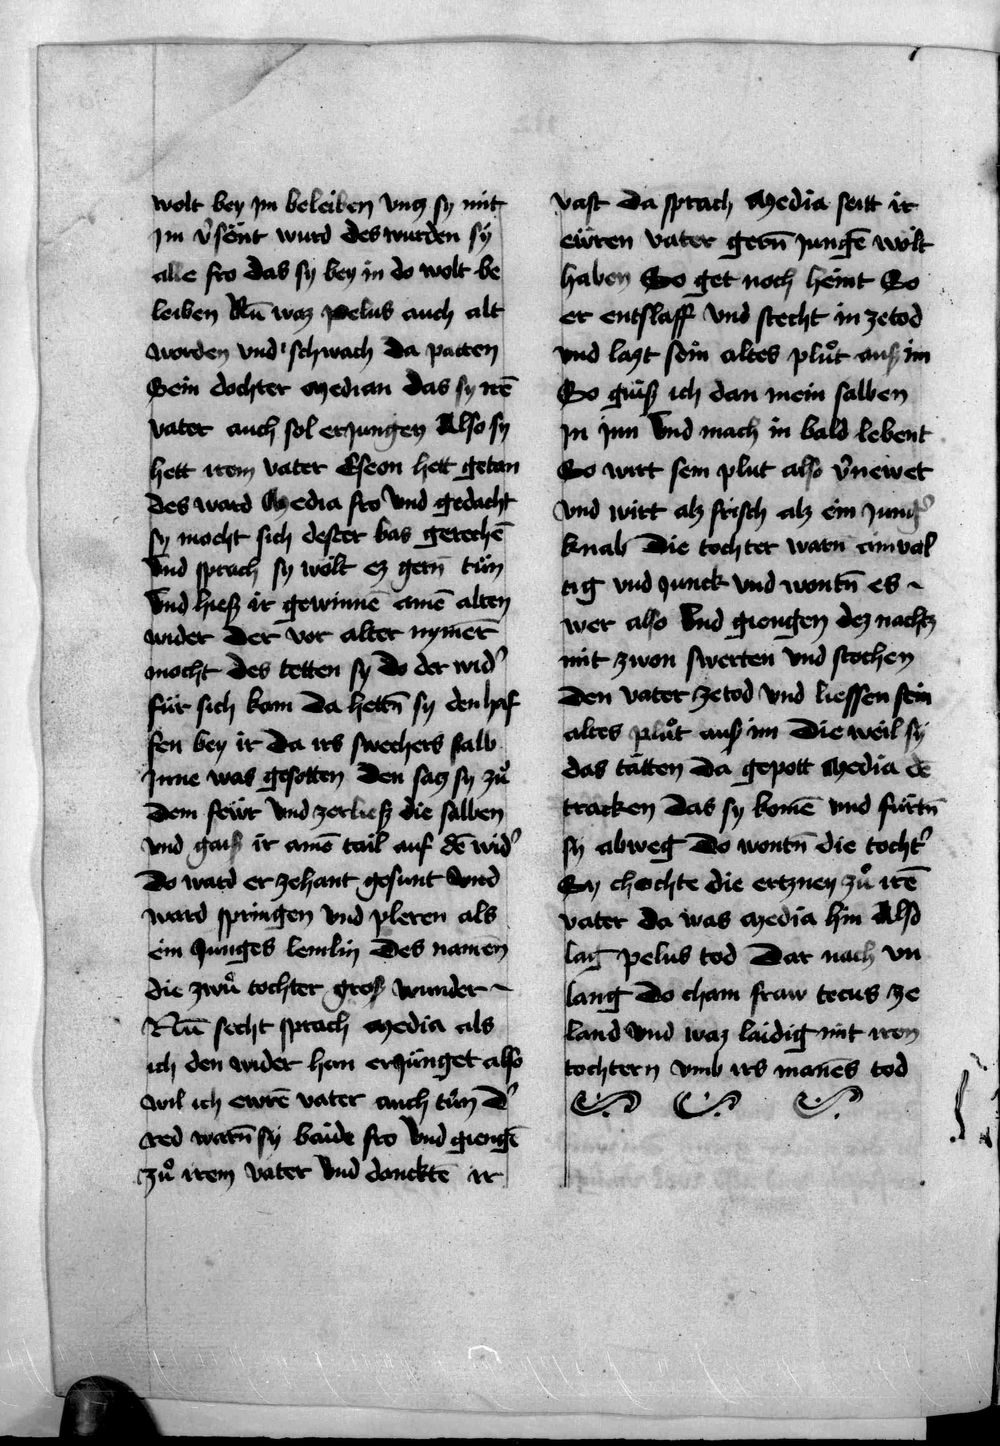 wolt bey jm beleiben vntz sy mit
jm v̉sönt wurd des wurden sy
alle fro das sy bey in do wolt be
leiben Nū waz pelus auch alt
worden vnd schwach da patten
Sein dochter Median das sy irē
vater auch sol erjungen Also sy
hett irem vater Eseon hett getan
des ward Media fro vnd gedacht
sy mocht sich dester bas gerechē
vnd sprach sy wölt ez gern̄ tůn
vnd hieß ir gewinnē ainē alten
wider Der vor alter nymer̄
mocht des tetten sy do der wid̉
für sich kam Da hettn̄ sy den haf
fen bey ir Da irs swechers salb
jnne was gesotten Den satz sy zů
Dem feẅr vnd zerließ die salben
vnd gaiß ir ainē tail auf dē wid̉
Do ward er zehant gesunt vnd
ward springen vnd pleren als
ein Junges lemlin Des namen
die zwů tochter groß wunder ~
Nū secht sprach Media als
ich den wider han erjünget also
wil ich ewrē vater auch tůn D̉
red warn̄ sy baide fro vnd giengē
zů irem vater vnd danckte ir
vast Da sprach Media seitt ir
eẅren vater gern̄ jungē wölt
haben So get noch heint So
er entslaff vnd stecht in ze tod
vnd lazt sein altes plůt auß im
So guiß ich dan mein salben
jn jnn vnd mach in bald lebent
So wirt sein plut also v̉newet
vnd wirt alz frisch alz ein jung̉
knab Die tochter warn̄ ainval
tig vnd junck vnd wontn̄ es ~
wer also Vnd giengen dez nachtz
mit zwon swerten vnd stochen
Den vater ze tod vnd liessen sein
altes plůt auß im Die weil sy
das tätten Da gepott Media dē
tracken Das sy komē vnd fürtn̄
sy abweg Do wontn̄ die tocht̉
Sy chochte die ertzney zů irē
vater Da was Media hin Also
lag pelus tod Dar nach vn
lang Do cham fraw tecus ze
land vnd waz laidig mit iren
tochtern vmb irs manēs tod